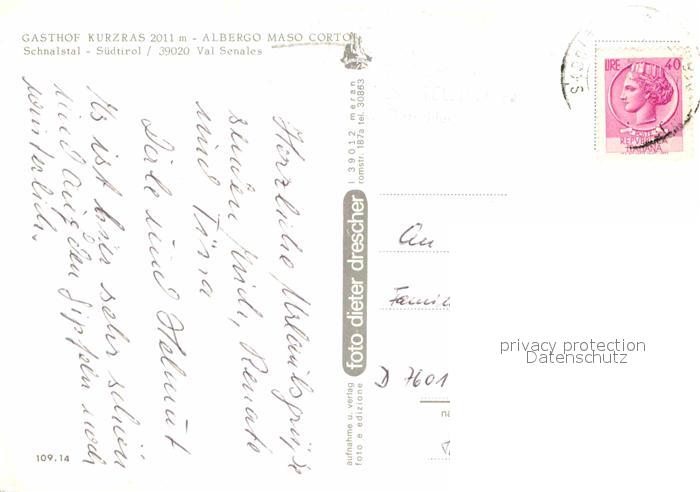 GASTHOF KURZRAS 2011 m - ALBERGO MASO CORTO
Schnalstal - Südtirol / 39020 Val Senales
Herzliche Urlaubsgrüße
senden Heidi, Renate
und Tina
Dole und Helmut
Es ist hier sehr schön
und auf den Gipfeln noch
winterlich.
109.14
I 39012 meran
romstr. 187a tel. 30863
foto dieter drescher
aufnahme u. verlag
foto e edizione
LIRE 40
REPVBBLICA
ITALIANA
An
Famil
D 7601
na
privacy protection
Datenschutz